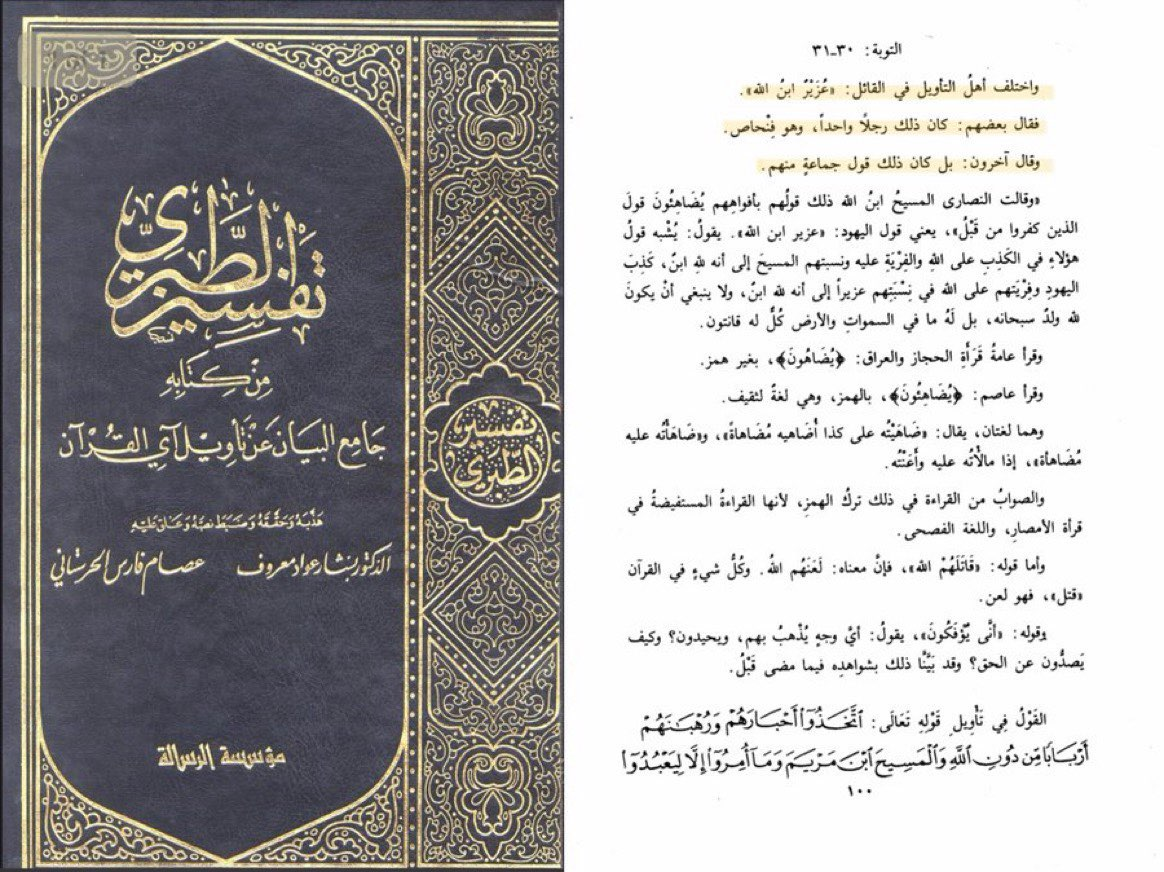 تفسير الطبري
من كتابه
جامع البيان عن تأويل آي القرآن
هذبه وحققه وضبط نصه وعلق عليه
الدكتور بشار عواد معروف عصام فارس الحرستاني
مؤسسة الرسالة
تفسير
الطبري
التوبة: ٣٠-٣١
واختلف أهلُ التأويل في القائل: «عُزَيْرٌ ابنُ الله».
فقال بعضهم: كان ذلك رجلًا واحداً، وهو فِنْحاص.
وقال آخرون: بل كان ذلك قول جماعةٍ منهم.
«وقالت النصارى المسيحُ ابنُ الله ذلك قولُهم بأفواهِهم يُضَاهِئُونَ قولَ
الذين كفروا من قَبْلُ»، يعني قول اليهود: «عزير ابن الله». يقولُ: يُشْبه قولُ
هؤلاءِ في الكَذِبِ على اللهِ والفِرْيَةِ عليه ونسبتهم المسيحَ إلى أنه للهِ ابنٌ، كَذِبَ
اليهودِ وفِرْيَتهم على الله في نِسْبَتِهم عزيراً إلى أنه لله ابنٌ، ولا ينبغي أنْ يكونَ
لله ولدٌ سبحانه، بل لَهُ ما في السمواتِ والأرض كُلٌّ له قانتون.
وقرأ عامةُ قَرَأَةِ الحجاز والعراق: ﴿يُضَاهُونَ﴾، بغير همز.
وقرأ عاصم: ﴿يُضَاهِئُونَ﴾، بالهمز، وهي لغةٌ لثقيف.
وهما لغتان، يقال: «ضَاهَيْتُه على كذا أُضَاهيه مُضَاهاةً»، و«ضَاهَأْتُه عليه
مُضَاهأة»، إذا مالأْتُه عليه وأَعَنْتُه.
والصوابُ من القراءة في ذلك تركُ الهمزِ، لأنها القراءةُ المستفيضةُ في
قرأة الأمصارِ، واللغة الفصحى.
وأما قوله: «قَاتَلَهُمْ الله»، فإنَّ معناه: لَعَنَهُم اللهُ. وكُلُّ شيءٍ في القرآن
«قتل»، فهو لعن.
وقوله: «أَنَّى يُؤْفَكُونَ»، يقولُ: أيَّ وجهٍ يُذْهبُ بهم، ويحيدون؟ وكيف
يَصدُّون عن الحق؟ وقد بَيَّنَّا ذلك بشواهدِه فيما مضى قَبْلُ.
القَوْلُ فِي تَأْوِيلِ قَوْلِهِ تَعَالَى: ٱتَّخَذُوٓا۟ أَحْبَارَهُمْ وَرُهْبَـٰنَهُمْ
أَرْبَابًا مِّن دُونِ ٱللَّهِ وَٱلْمَسِيحَ ٱبْنَ مَرْيَمَ وَمَآ أُمِرُوٓا۟ إِلَّا لِيَعْبُدُوٓا۟
١٠٠